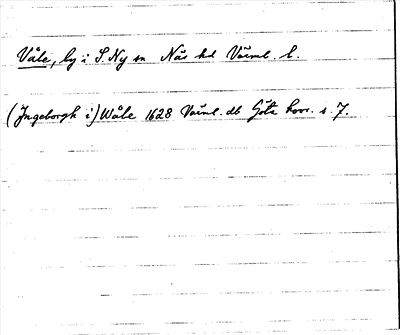 Våle, by i S. Ny sn Näs hd Värml. l.
(Jngeborgh i) Wåle 1628 Värml. db Göta hovr. s. 7.